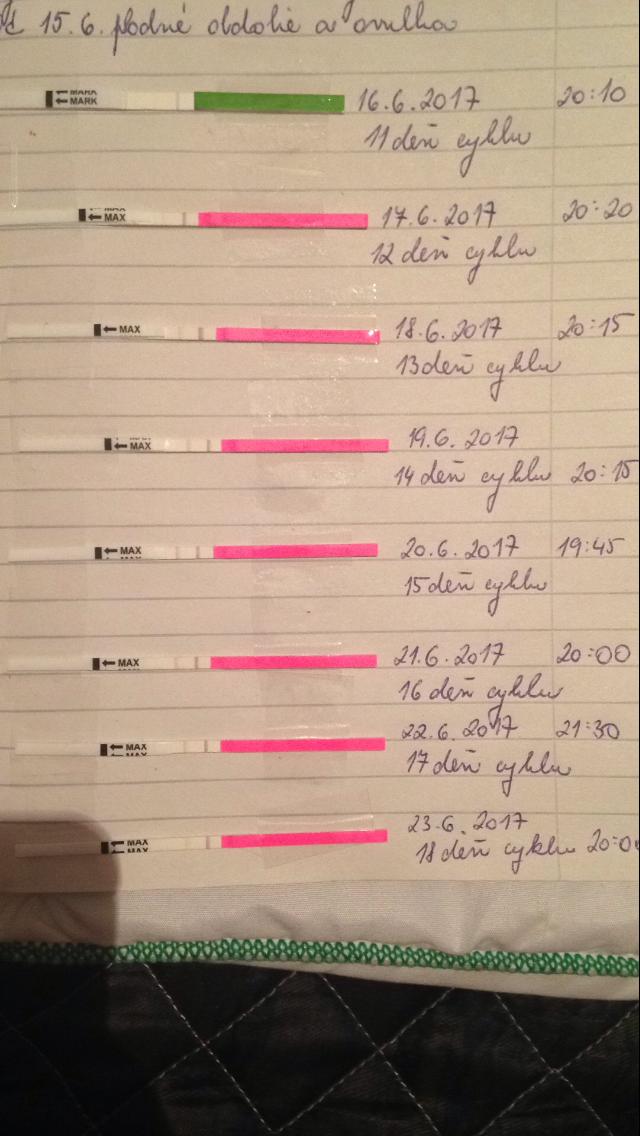 15.6. plodné obdobie a ovulka
MARK
MARK
16.6.2017 20:10
11 deň cyklu
MAX
MAX
17.6.2017 20:20
12 deň cyklu
MAX
18.6.2017 20:15
13 deň cyklu
MAX
19.6.2017
14 deň cyklu 20:15
MAX
20.6.2017 19:45
15 deň cyklu
MAX
21.6.2017 20:00
16 deň cyklu
MAX
22.6.2017 21:30
17 deň cyklu
MAX
MAX
23.6.2017
18 deň cyklu 20:00